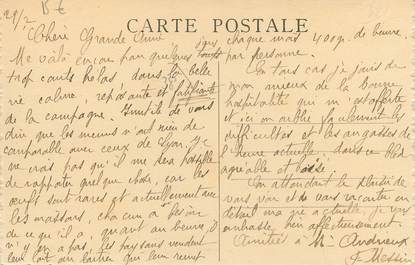 29/2
CARTE POSTALE
Chère Grande Amie
Me voilà encore pour quelques jours
trop courts hélas dans la belle
vie calme, reposante et
de la campagne. Inutile de vous
dire que les menus n'ont rien de
comparable avec ceux de Lyon. Je
ne crois pas qu'il me sera possible
de rapporter quelque chose, car les
œufs sont rares et actuellement avec
les chacun a besoin
de ce qu'il a, quant au beurre, il
n'y en a pas, les paysans vendent
leur lait au laitier qui leur remet
chaque mois 400 gr. de beurre
par personne.
En tous cas je jouis de
mon mieux de la bonne
hospitalité qui m'est offerte
et ici on oublie facilement les
difficultés et les angoisses de
l'heure actuelle, dans ce
agréable et
En attendant le plaisir de
vous voir et de vous raconter en
détail ma vie actuelle, je vous
embrasse bien affectueusement
Amitiés à Mr Andrieux